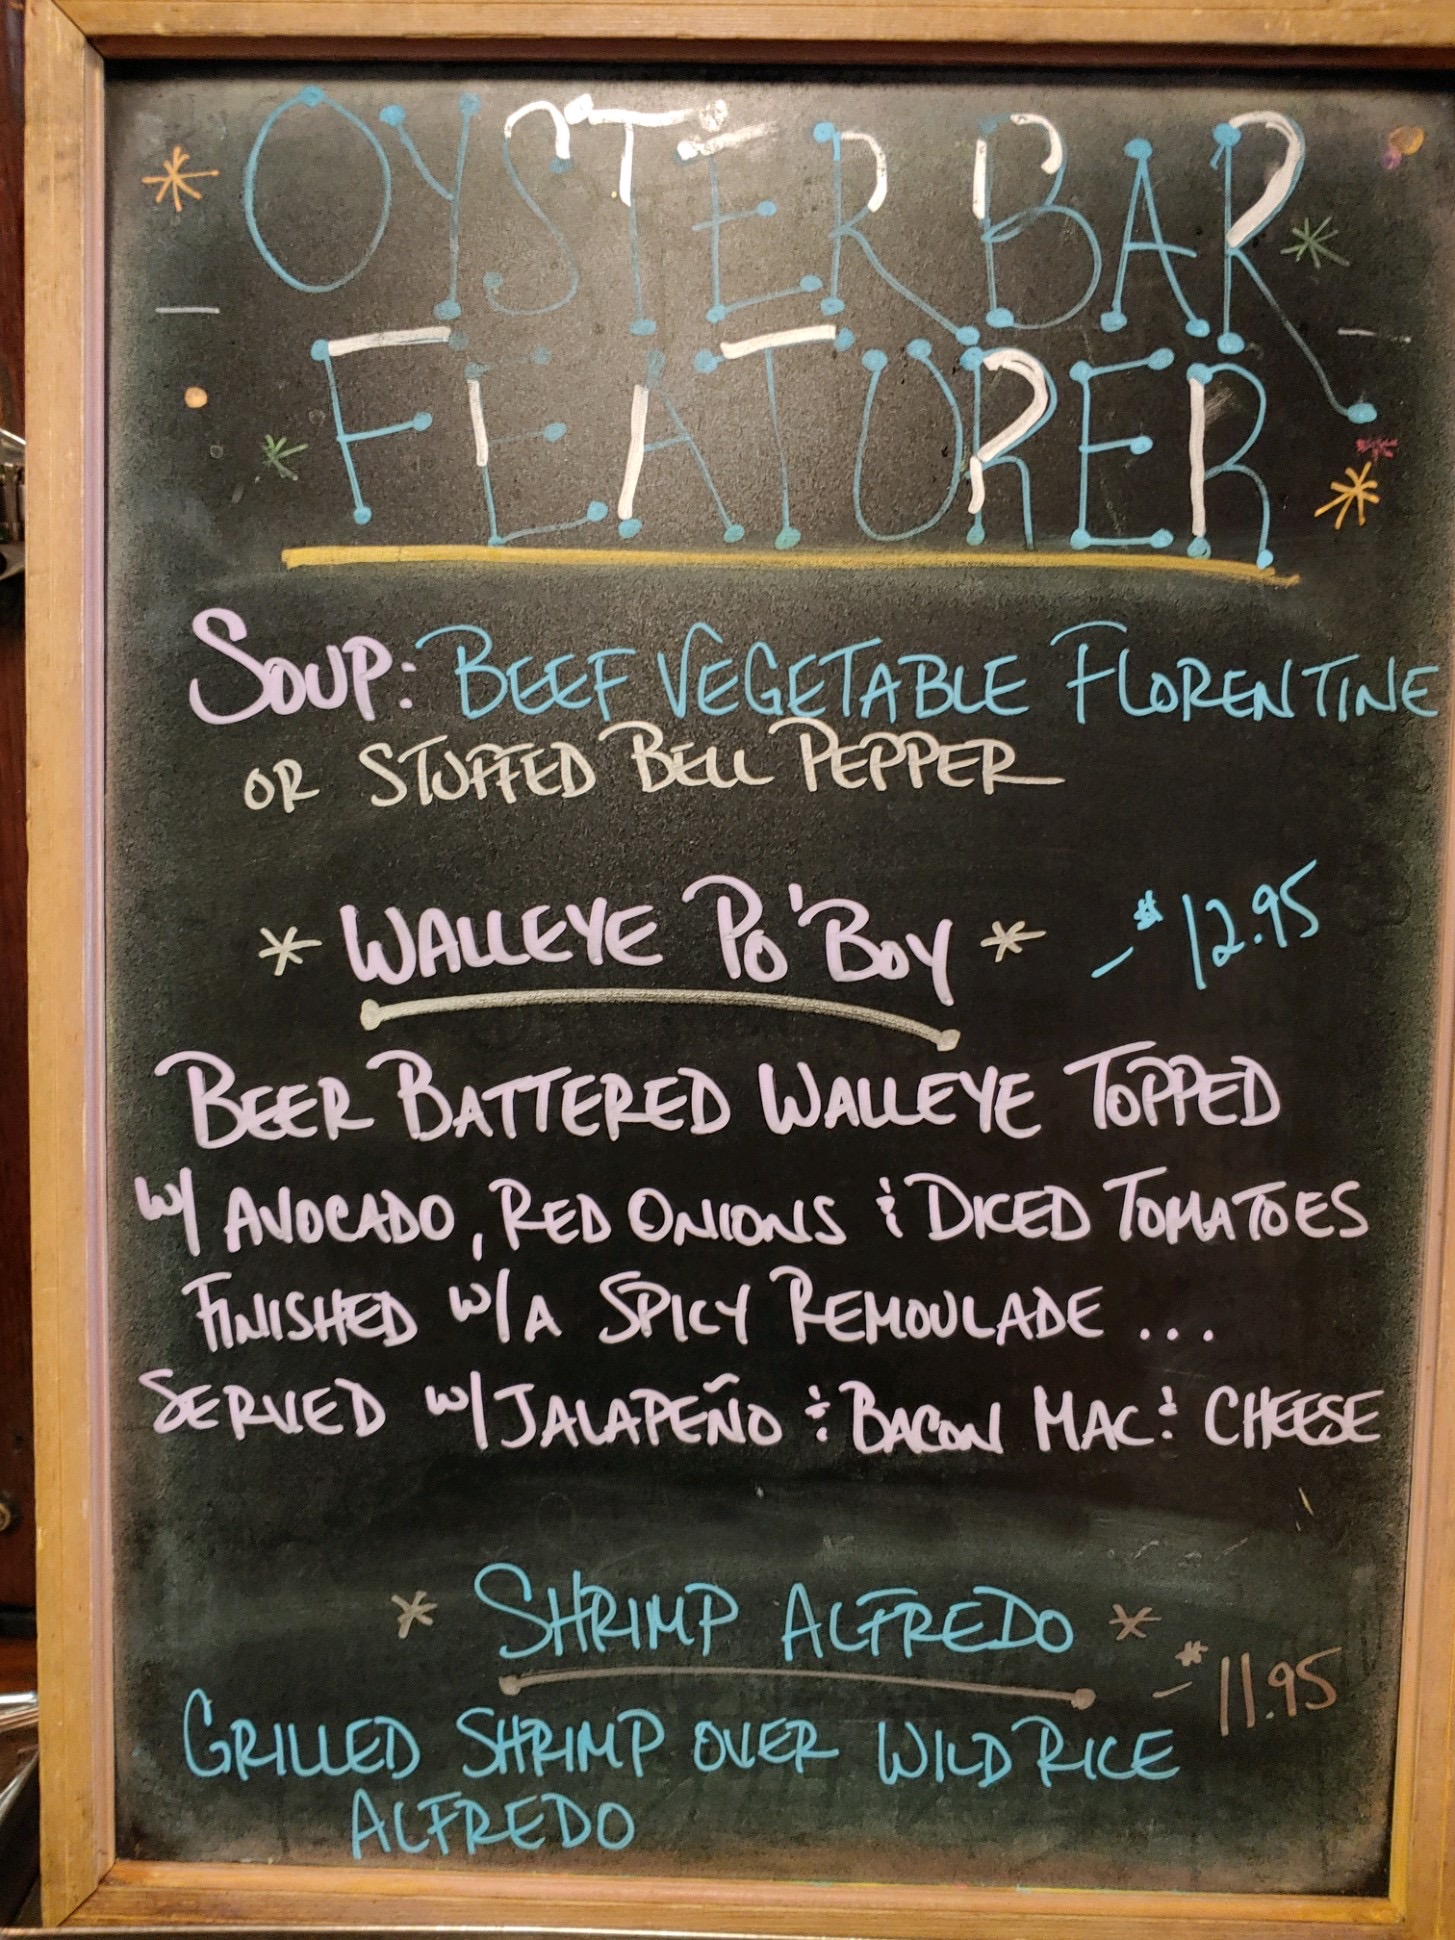 OYSTER BAR
FEATURER
SOUP: BEEF VEGETABLE FLORENTINE
OR STUFFED BELL PEPPER
* WALLEYE PO'BOY * - $12.95
BEER BATTERED WALLEYE TOPPED
W/ AVOCADO, RED ONIONS & DICED TOMATOES
FINISHED W/A SPICY REMOULADE ...
SERVED W/JALAPEÑO & BACON MAC & CHEESE
* SHRIMP ALFREDO *
- $11.95
GRILLED SHRIMP OVER WILD RICE
ALFREDO